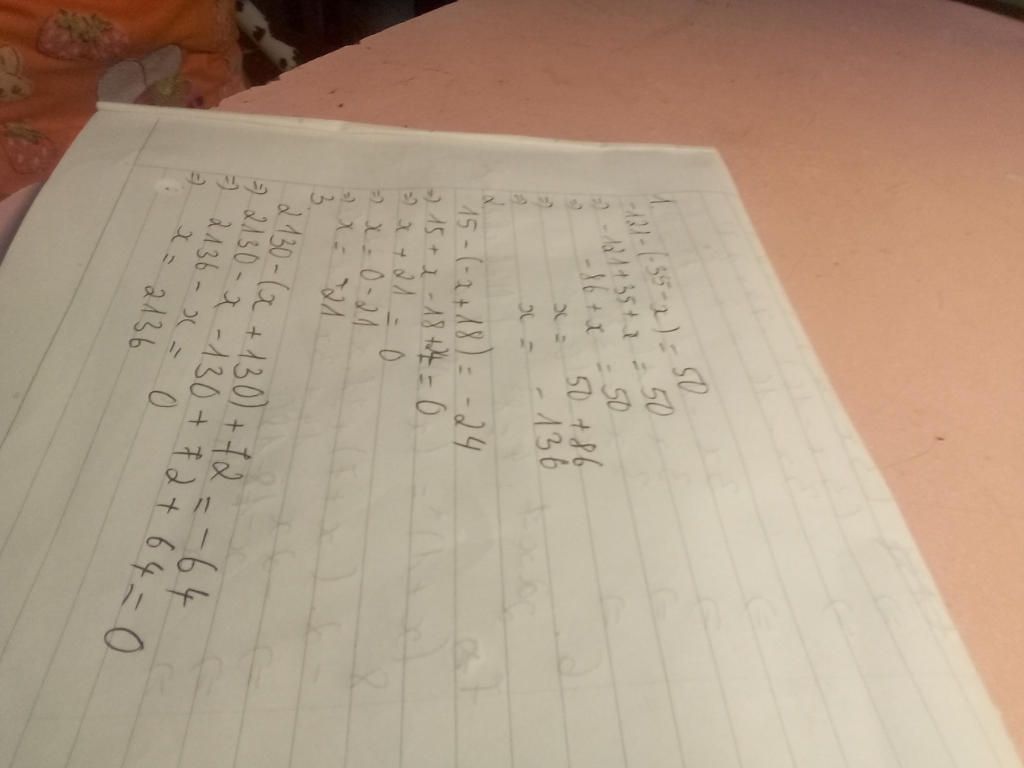 1
-121-(-35-x) = 50
=) -121+35+x = 50
=) -86+x = 50
=) x = 50 +86
=) x = -136
2
15-(-x+18) = -24
=) 15+x-18+24=0
=) x+21 = 0
=) x = 0-21
=) x = -21
3
2130-(x+130)+72 = -64
=) 2130-x-130+72+64=0
=) 2136-x = 0
=) x = 2136